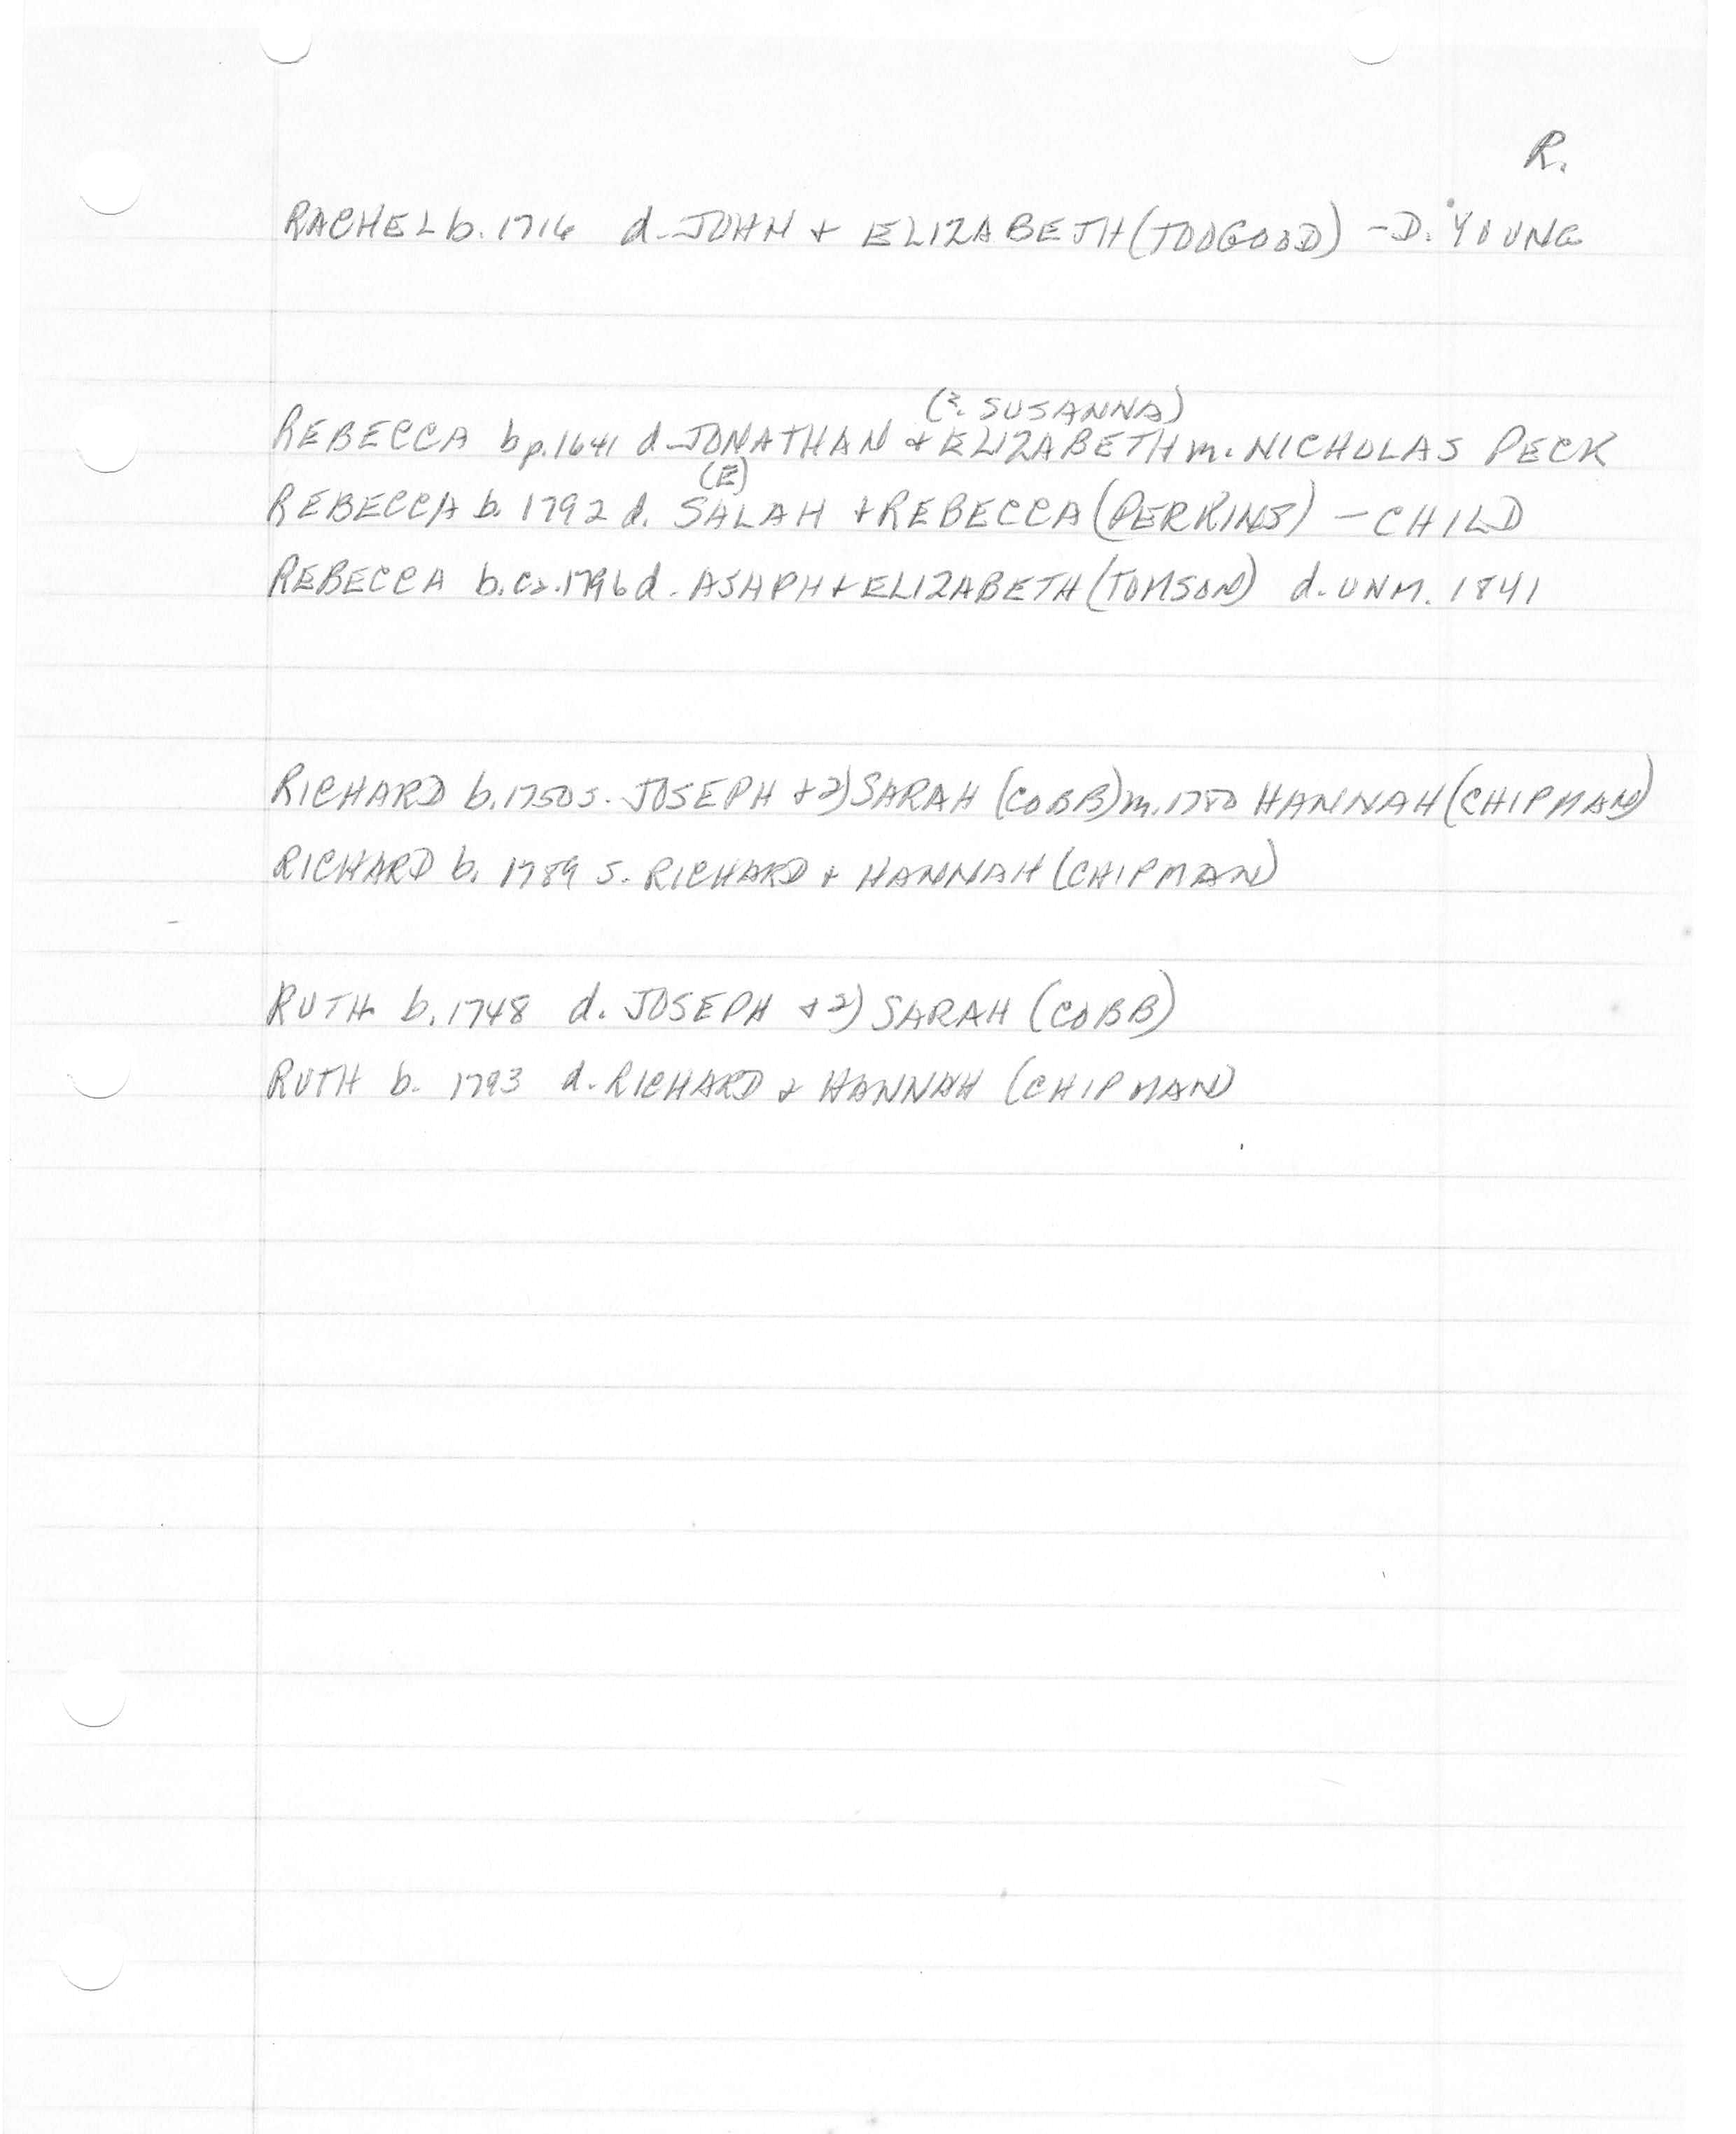 R.
RACHEL b. 1716 d. JOHN + ELIZABETH (TOOGOOD) - D. YOUNG
(?. SUSANNA)
REBECCA bp. 1641 d. JONATHAN + ELIZABETH m. NICHOLAS PECK
(E)
REBECCA b. 1792 d. SALAH + REBECCA (PERKINS) - CHILD
REBECCA b. ca. 1796 d. ASAPH + ELIZABETH (TOMSON) d. UNM. 1841
RICHARD b. 1750 s. JOSEPH + 2) SARAH (COBB) m. 1780 HANNAH (CHIPMAN)
RICHARD b. 1789 s. RICHARD + HANNAH (CHIPMAN)
RUTH b. 1748 d. JOSEPH + 2) SARAH (COBB)
RUTH b. 1793 d. RICHARD + HANNAH (CHIPMAN)